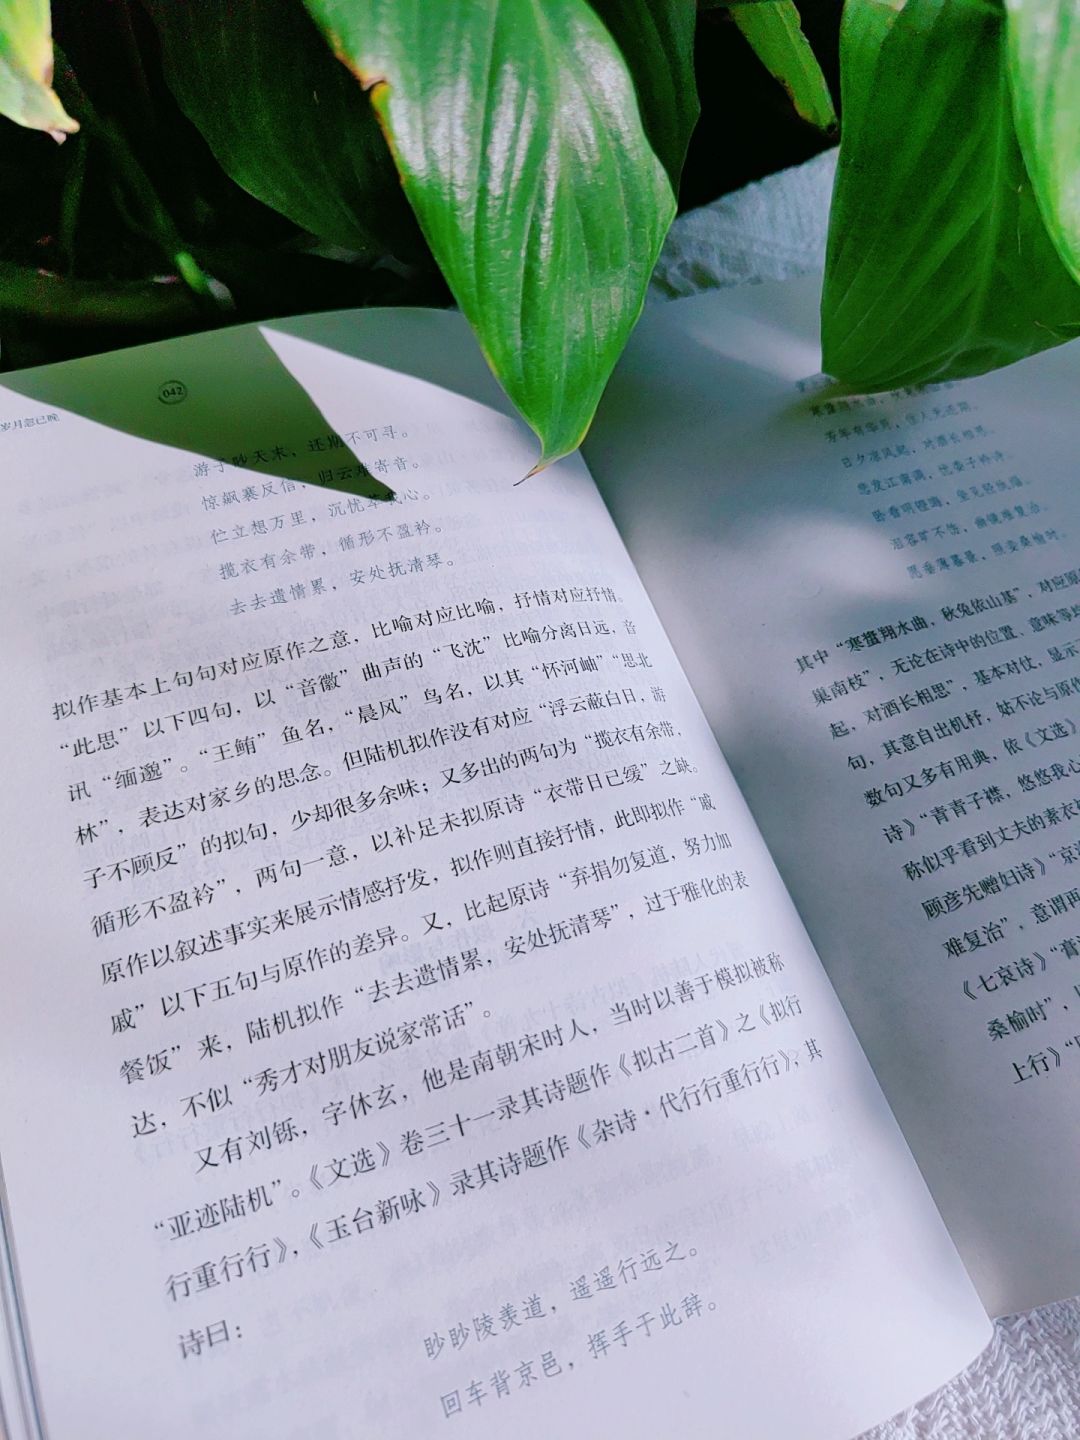 岁月忽已晚
042
游子眇天末，还期不可寻。
惊飙褰反信，归云难寄音。
伫立想万里，沉忧萃我心。
揽衣有余带，循形不盈衿。
去去遗情累，安处抚清琴。
拟作基本上句句对应原作之意，比喻对应比喻，抒情对应抒情。
“此思”以下四句，以“音徽”曲声的“飞沈”比喻分离日远，音
讯“缅邈”。“王鲔”鱼名，“晨风”鸟名，以其“怀河岫”“思北
林”，表达对家乡的思念。但陆机拟作没有对应“浮云蔽白日，游
子不顾反”的拟句，少却很多余味；又多出的两句为“揽衣有余带，
循形不盈衿”，两句一意，以补足未拟原诗“衣带日已缓”之缺。
原作以叙述事实来展示情感抒发，拟作则直接抒情，此即拟作“戚
戚”以下五句与原作的差异。又，比起原诗“弃捐勿复道，努力加
餐饭”来，陆机拟作“去去遗情累，安处抚清琴”，过于雅化的表
达，不似“秀才对朋友说家常话”。
又有刘铄，字休玄，他是南朝宋时人，当时以善于模拟被称
“亚迹陆机”。《文选》卷三十一录其诗题作《拟古二首》之《拟行
行重行行》，《玉台新咏》录其诗题作《杂诗·代行行重行行》，其
诗曰：
眇眇陵羡道，遥遥行远之。
回车背京邑，挥手于此辞。
芳年有华月，佳人无还期。
日夕凉风起，对酒长相思。
悲发江南调，忧委子衿诗。
卧看明镫晦，坐见轻纨缁。
泪容旷不饬，幽镜难复治。
愿垂薄暮景，照妾桑榆时。
其中“寒螀翔水曲，秋兔依山基”，对应原
巢南枝”，无论在诗中的位置、意味等
起，对酒长相思”，基本对仗，显示
句，其意自出机杼，姑不论与原作
数句又多有用典，依《文选》
诗》“青青子衿，悠悠我心
称似乎看到丈夫的素衣
顾彦先赠妇诗》“京
难复治”，意谓再
《七哀诗》“膏
桑榆时”，
上行》“